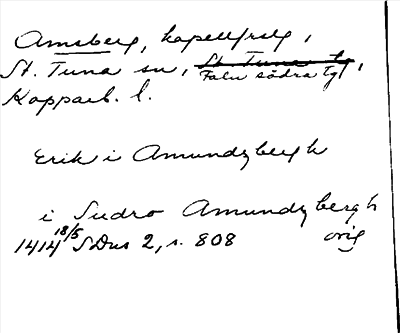 Amsberg, kapellförs,
St. Tuna sn, St Tuna tg,
Falu södra tg
Kopparb. l.
Erik i Amundzbergh
i Sudro Amundzbergh
1414 18/5 SDns 2, s. 808 orig